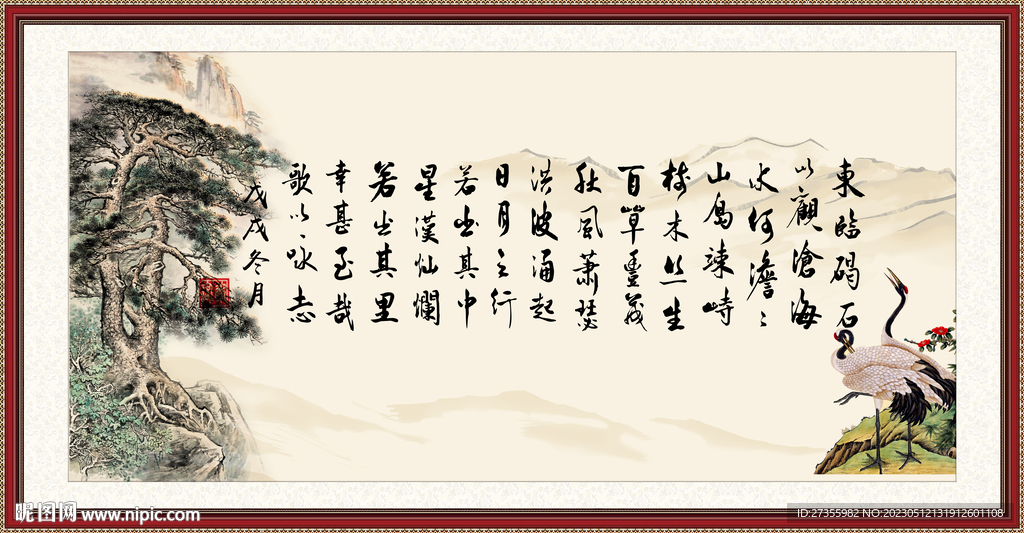 東臨碣石
以觀滄海
水何澹々
山島竦峙
树木丛生
百草豐茂
秋風蕭瑟
洪波涌起
日月之行
若出其中
星漢灿爛
若出其里
幸甚至哉
歌以咏志
戊戌冬月
昵图网 www.nipic.com
ID:27355982 NO:20230512131912601108